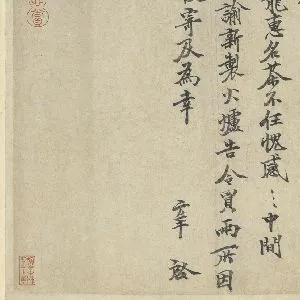 惠名茶不任愧感〻中間
諭新製火爐告令買兩所因
寄及為幸
啓